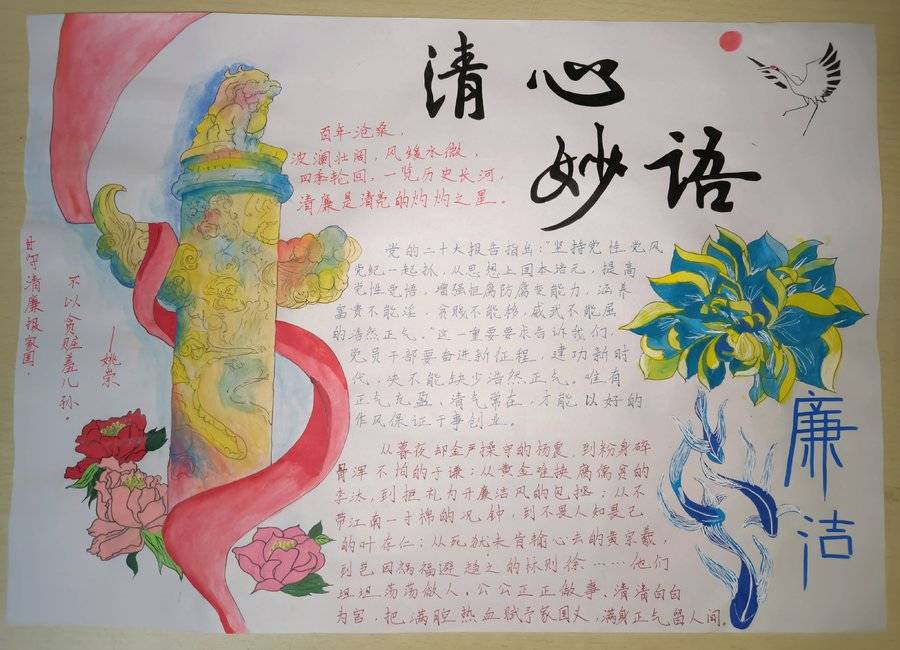 清心
妙语
百年沧桑，
波澜壮阔，风媛水微，
四季轮回，一览历史长河，
清廉是清亮的灼灼之星。
党的二十大报告指出："坚持党性党风
党纪一起抓，从思想上固本培元，提高
党性觉悟，增强拒腐防腐变能力，涵养
富贵不能淫，贫贱不能移，威武不能屈
的浩然正气。"这一重要要求告诉我们，
党员干部要奋进新征程，建功新时
代，决不能缺少浩然正气。唯有
正气充盈、清气常在，才能以好的
作风保证干事创业。
从暮夜却金严操守的杨震，到粉身碎
骨浑不怕的于谦；从黄金难换腐儒贫的
李汰，到拒礼为开廉洁风的包拯；从不
带江南一寸棉的况钟，到不畏人知畏己
的叶存仁；从死犹未肯输心去的黄宗羲，
到岂因祸福避趋之的林则徐……他们
坦坦荡荡做人，公公正正做事，清清白白
为官，把满胆热血赋予家国天，满身正气留人间。
甘守清廉报家国，
不以贪赃羞儿孙。
—姚崇
廉
洁